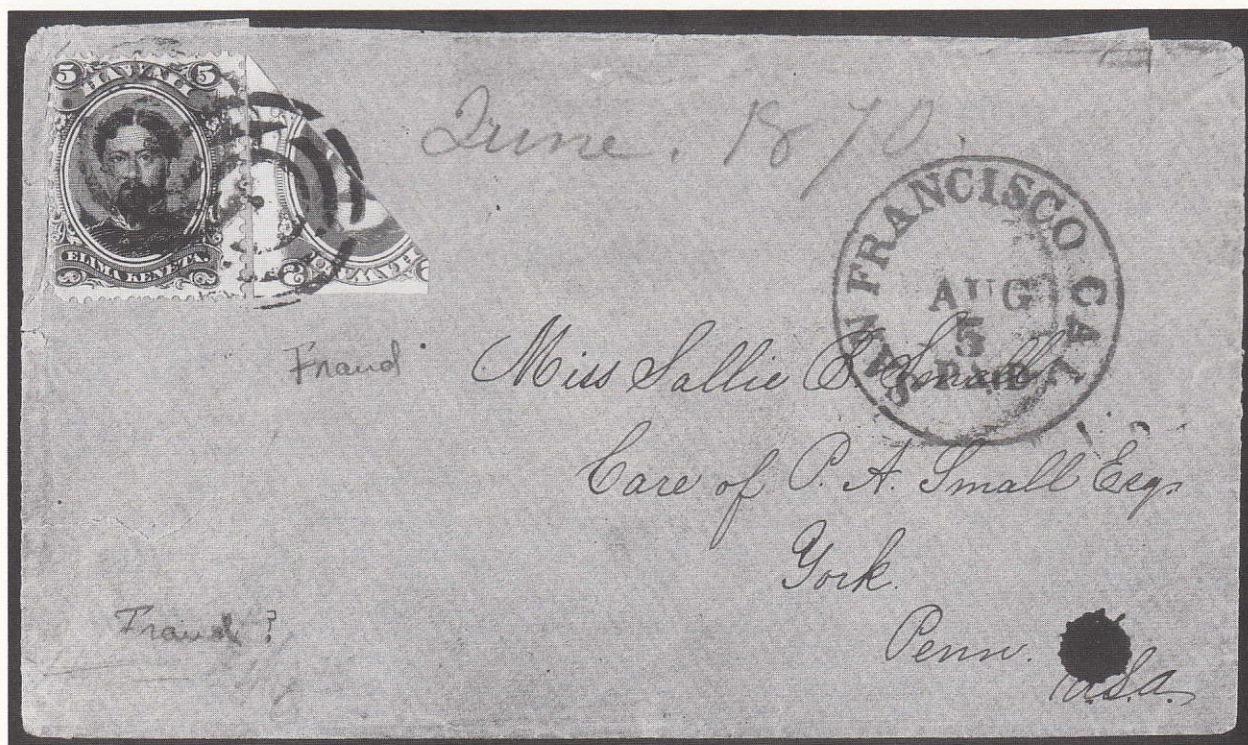 5 HAWAII 5
ELIMA KENETA.
HAWAII
June. 1870.
SAN FRANCISCO CAL.
AUG
5
PAID
Fraud
Miss Sallie Small
Care of P. A. Small Esq.
York.
Penn.
U.S.A.
Fraud?